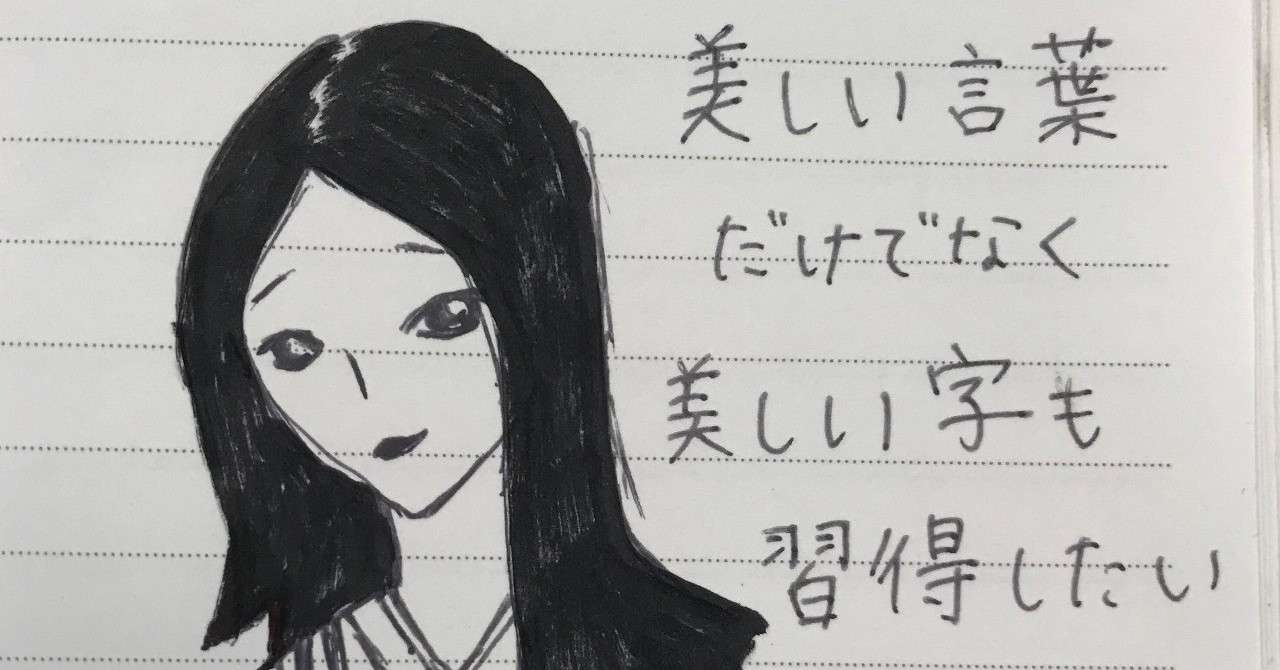 美しい言葉
だけでなく
美しい字も
習得したい